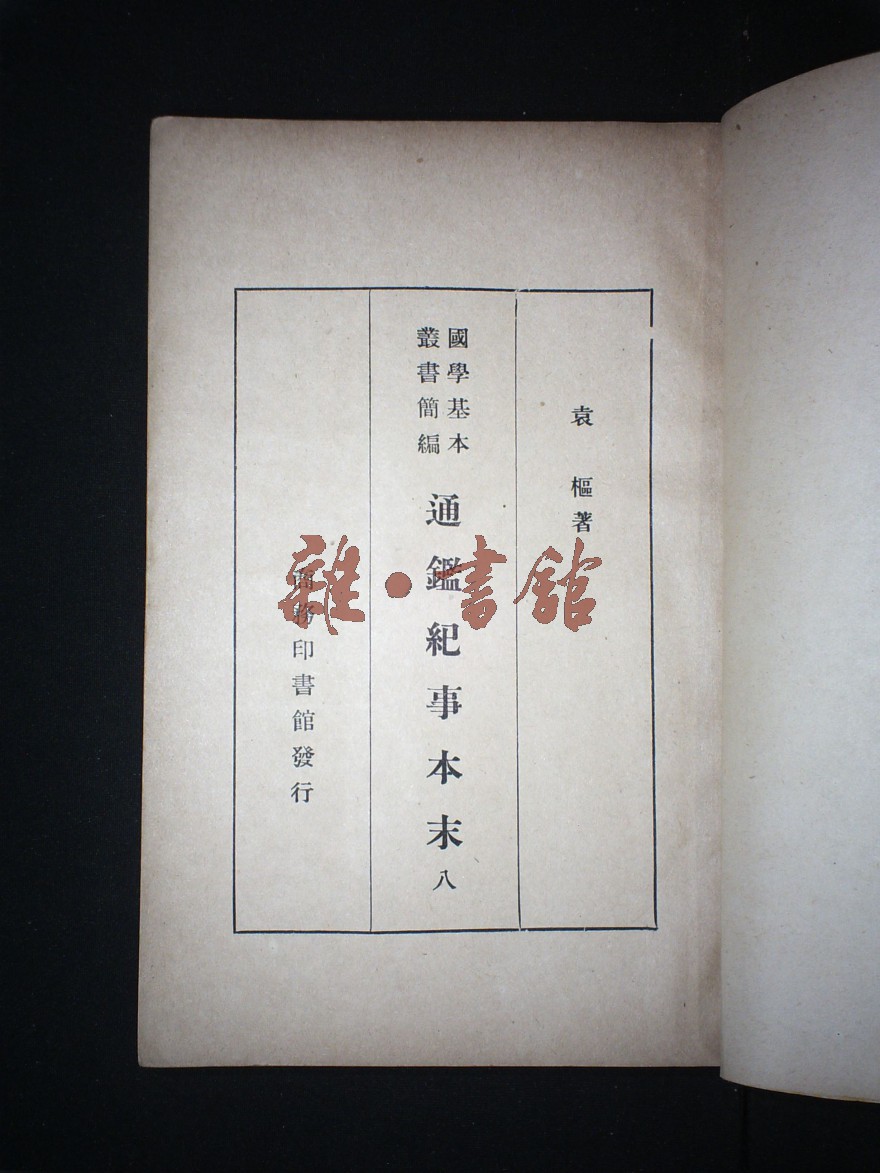 袁樞著
國學基本
叢書簡編
通鑑紀事本末 八
商務印書館發行
雜·書館